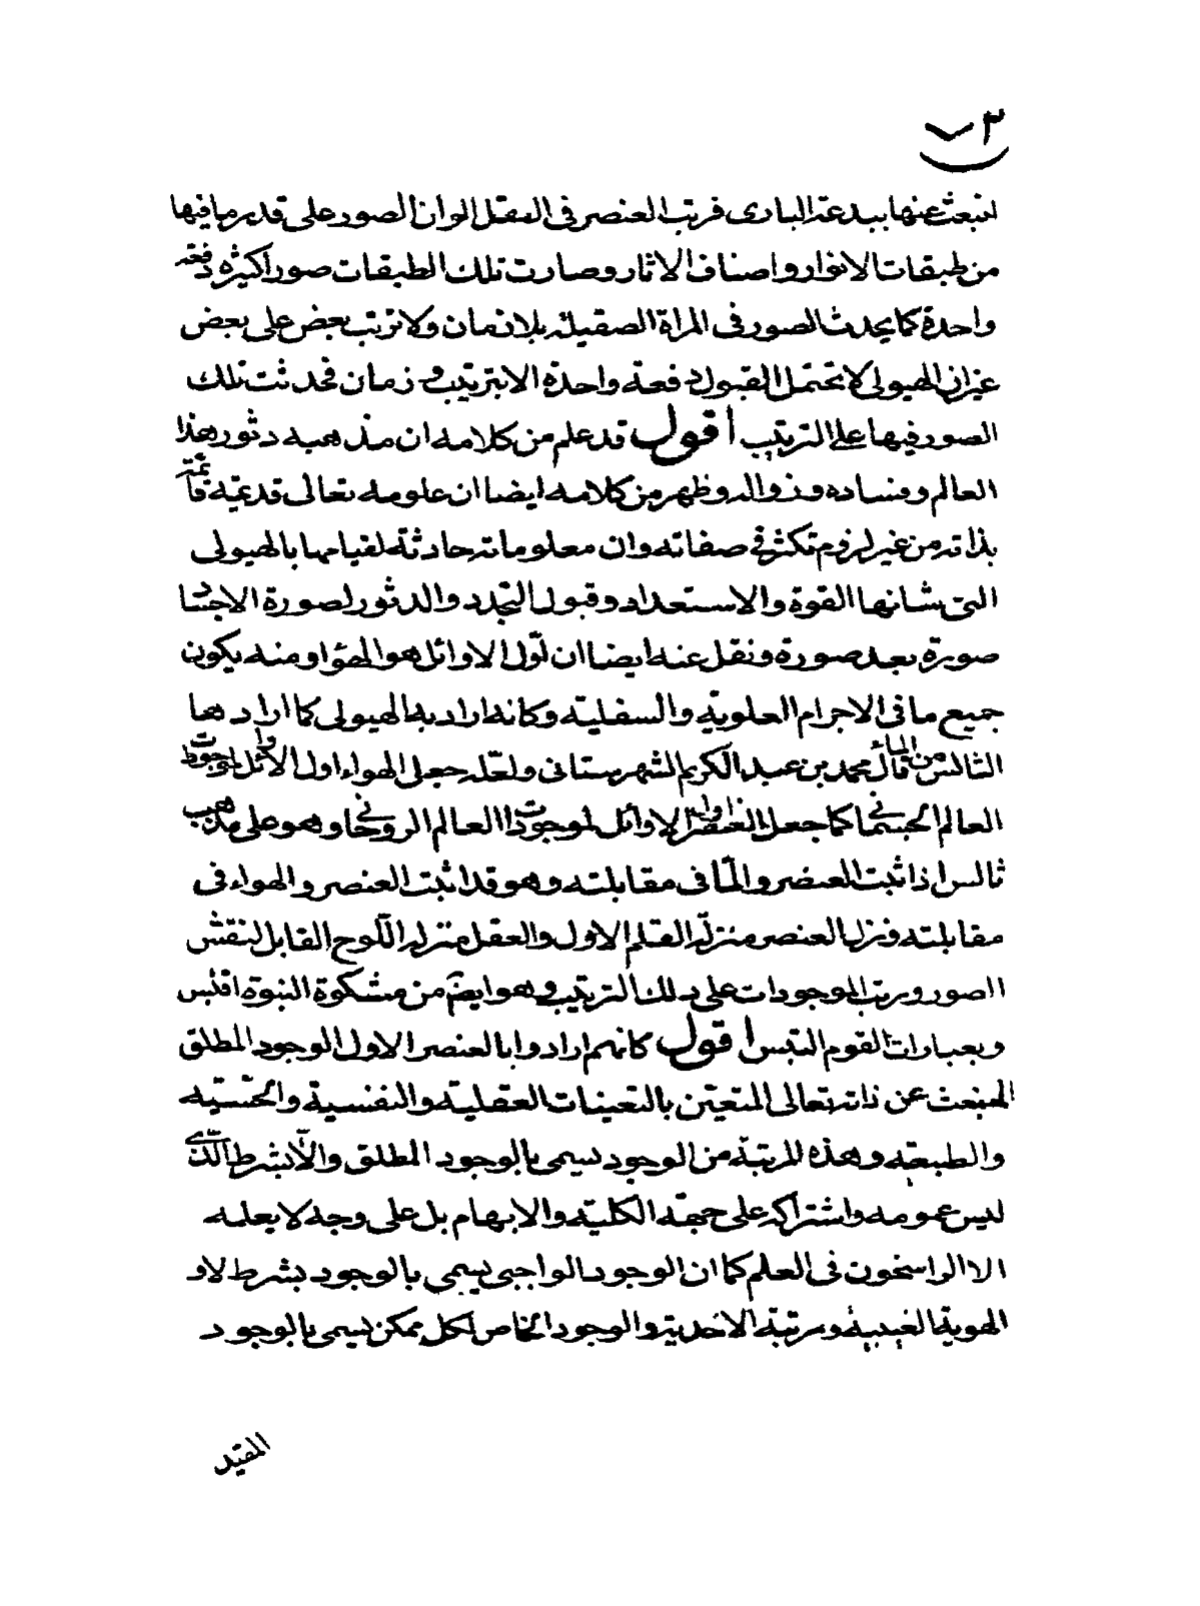 ٣٧
لتبعث عنها ببدعة الباری فرتب العنصر فی العقل الوان الصور علی قدر ما فیها
من طبقات الانوار واصناف الاثار وصارت تلك الطبقات صورا کثیره دفعة
واحدة کما یحدث الصور فی المراة الصقیلة بلا زمان ولا ترتب بعض علی بعض
غیر ان الهیولی لا تحتمل القبول دفعة واحدة الا بترتیب و زمان فحدثت تلك
الصور فیها علی الترتیب اقول قد علم من کلامه ان مذهبه دثور هذا
العالم وفساده وزواله وظهر من کلامه ایضا ان علومه تعالی قدیمة قائمة
بذاته من غیر لزوم تکثر فی صفاته وان معلوماته حادثة لقیامها بالهیولی
التی شانها القوة والاستعداد وقبول التجدد والدثور لصورة الاجساد
صورة بعد صورة ونقل عنه ایضا ان اول الاوائل هو الهواء ومنه یکون
جمیع ما فی الاجرام العلویة والسفلیة وکانه اراد به الهیولی کما اراد ها
الثالس من الماء قال محمد بن عبد الکریم الشهرستانی ولعله جعل الهواء اول الاوائل لموجودات
العالم الجسمانی کما جعل العنصر اول الاوائل لموجودات العالم الروحانی وهو علی مذهب
ثالس اذ اثبت العنصر والماء فی مقابلته وهو قد اثبت العنصر والهواء فی
مقابلته ونزل العنصر منزلة القلم الاول والعقل منزلة اللوح القابل لنقش
الصور ورتب الموجودات علی ذلك الترتیب وهو ایضا من مشکوة النبوة اقتبس
وبعبارات القوم التبس اقول کانهم ارادوا بالعنصر الاول الوجود المطلق
المنبعث عن ذاته تعالی المتعین بالتعینات العقلیة والنفسیة والحسیة
والطبیعیة وهذه المرتبة من الوجود یسمی بالوجود المطلق واللابشرط الذی
لیس عمومه واشتراکه علی جهة الکلیة والابهام بل علی وجه لا یعلمه
الا الراسخون فی العلم کما ان الوجود الواجبی یسمی بالوجود بشرط لا و
الهویة الغیبیة ومرتبة الاحدیة والوجود الخاص لکل ممکن یسمی بالوجود
المقید